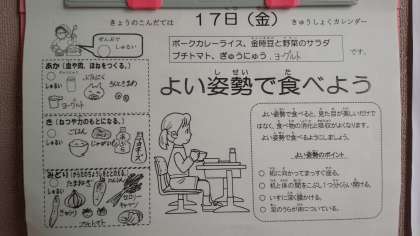 きょうのこんだては
17日(金)
きゅうしょくカレンダー
ぜんぶで
しゅるい
ポークカレーライス、金時豆と野菜のサラダ
プチトマト、ぎゅうにゅう、ヨーグルト
です。
よい姿勢で食べよう
しせい
た
あか(血や肉、ほねをつくる。)
しゅるい
ぶたにく
ヨーグルト
き(ねつや力のもとになる。)
しゅるい
ごはん
じゃがいも
あぶら
マヨネーズ
みどり(からだのちょうしをととのえる。)
しゅるい
たまねぎ
にんじん
きゅうり
プチトマト
よい姿勢で食べると、見た目が美しいだけで
はなく、食べ物の消化と吸収がよくなります。
よい姿勢で食べるようにしましょう。
よい姿勢のポイント
○ 机に向かってまっすぐ座る。
○ 机と体の間をこぶし1つ分くらい開ける。
○ いすに深く腰かける。
○ 足のうらが床についている。